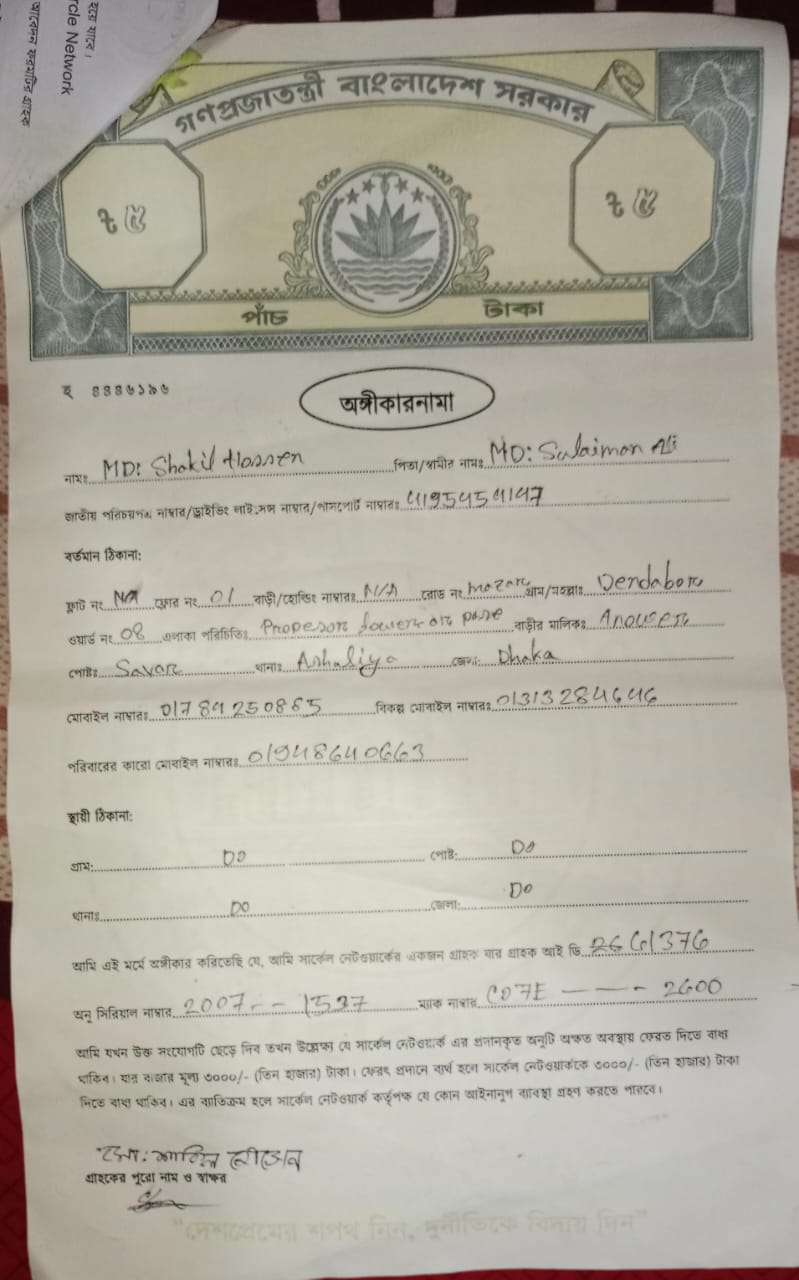 হয়ে যাবে।
rcle Network
আবেদন ফরমটির গ্রাহক
গণপ্রজাতন্ত্রী বাংলাদেশ সরকার
৳ ৫
৳ ৫
পাঁচ টাকা
হ ৪৪৪৬১৯৬
অঙ্গীকারনামা
নামঃ MD: Shakil Hossen পিতা/স্বামীর নামঃ MD: Sulaiman Ali
জাতীয় পরিচয়পত্র নাম্বার/ড্রাইভিং লাইসেন্স নাম্বার/পাসপোর্ট নাম্বারঃ
বর্তমান ঠিকানা:
ফ্লাট নং N/A ফ্লোর নং 01 বাড়ী/হোল্ডিং নাম্বারঃ N/A রোড নং mozar গ্রাম/মহল্লাঃ Dendabor
ওয়ার্ড নং 08 এলাকা পরিচিতিঃ Propesor tower বাড়ীর মালিকঃ Anower
পোষ্টঃ Savar থানাঃ Ashaliya জেলা: Dhaka
মোবাইল নাম্বারঃ বিকল্প মোবাইল নাম্বারঃ 01313284646
পরিবারের কারো মোবাইল নাম্বারঃ 01948640663
স্থায়ী ঠিকানা:
গ্রাম: DO পোষ্ট: DO
থানাঃ DO জেলা: DO
আমি এই মর্মে অঙ্গীকার করিতেছি যে, আমি সার্কেল নেটওয়ার্কের একজন গ্রাহক যার গ্রাহক আই ডি 2661376
অনু সিরিয়াল নাম্বার 2007 -- 1537 ম্যাক নাম্বার C07E ---- 2600
আমি যখন উক্ত সংযোগটি ছেড়ে দিব তখন উল্লেক্ষ্য যে সার্কেল নেটওয়ার্ক এর প্রদানকৃত অনুটি অক্ষত অবস্থায় ফেরত দিতে বাধ্য
থাকিব। যার বাজার মূল্য ৩০০০/- (তিন হাজার) টাকা। ফেরৎ প্রদানে ব্যর্থ হলে সার্কেল নেটওয়ার্ককে ৩০০০/- (তিন হাজার) টাকা
দিতে বাধ্য থাকিব। এর ব্যাতিক্রম হলে সার্কেল নেটওয়ার্ক কর্তৃপক্ষ যে কোন আইনানুগ ব্যাবস্থা গ্রহণ করতে পারবে।
মো: শাকিল হোসেন
গ্রাহকের পুরো নাম ও স্বাক্ষর
"দেশপ্রেমের শপথ নিন, দুর্নীতিকে বিদায় দিন"